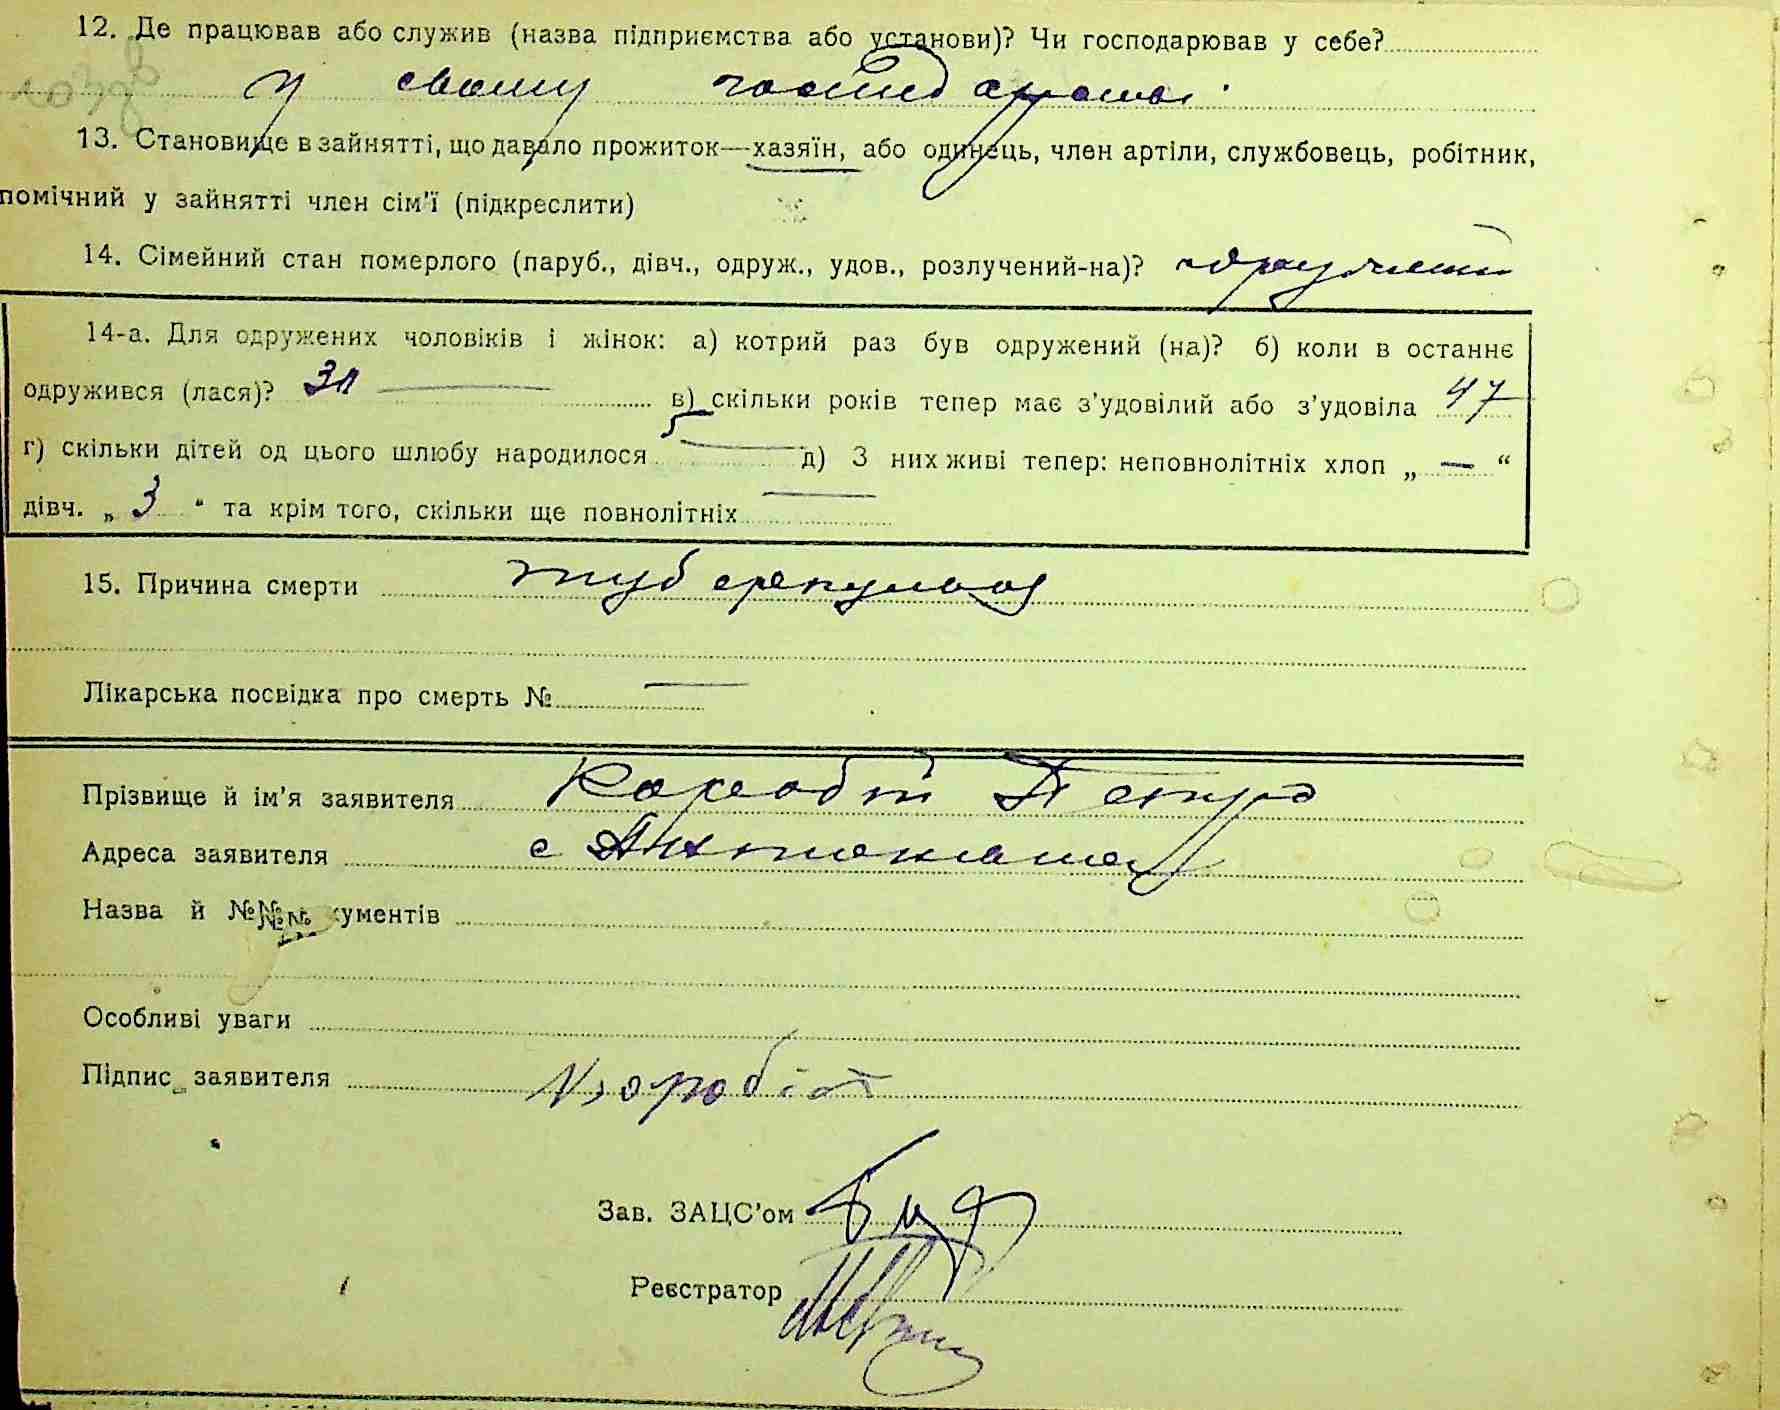 12. Де працював або служив (назва підприємства або установи)? Чи господарював у себе?
у своему
13. Становище в зайнятті, що давало прожиток—хазяїн, або одинець, член артіли, службовець, робітник,
помічний у зайнятті член сім'ї (підкреслити)
14. Сімейний стан померлого (паруб., дівч., одруж., удов., розлучений-на)?
14-а. Для одружених чоловіків і жінок: а) котрий раз був одружений (на)? б) коли в останнє
одружився (лася)? в) скільки років тепер має з'удовілий або з'удовіла 47
г) скільки дітей од цього шлюбу народилося д) З них живі тепер: неповнолітніх хлоп „ — “
дівч. „ 3 “ та крім того, скільки ще повнолітніх
15. Причина смерти туберкульоз
Лікарська посвідка про смерть № —
Прізвище й ім'я заявителя Коробіт Петро
Адреса заявителя с
Назва й №№ кументів
Особливі уваги
Підпис заявителя Коробіт
Зав. ЗАЦС'ом
Реєстратор